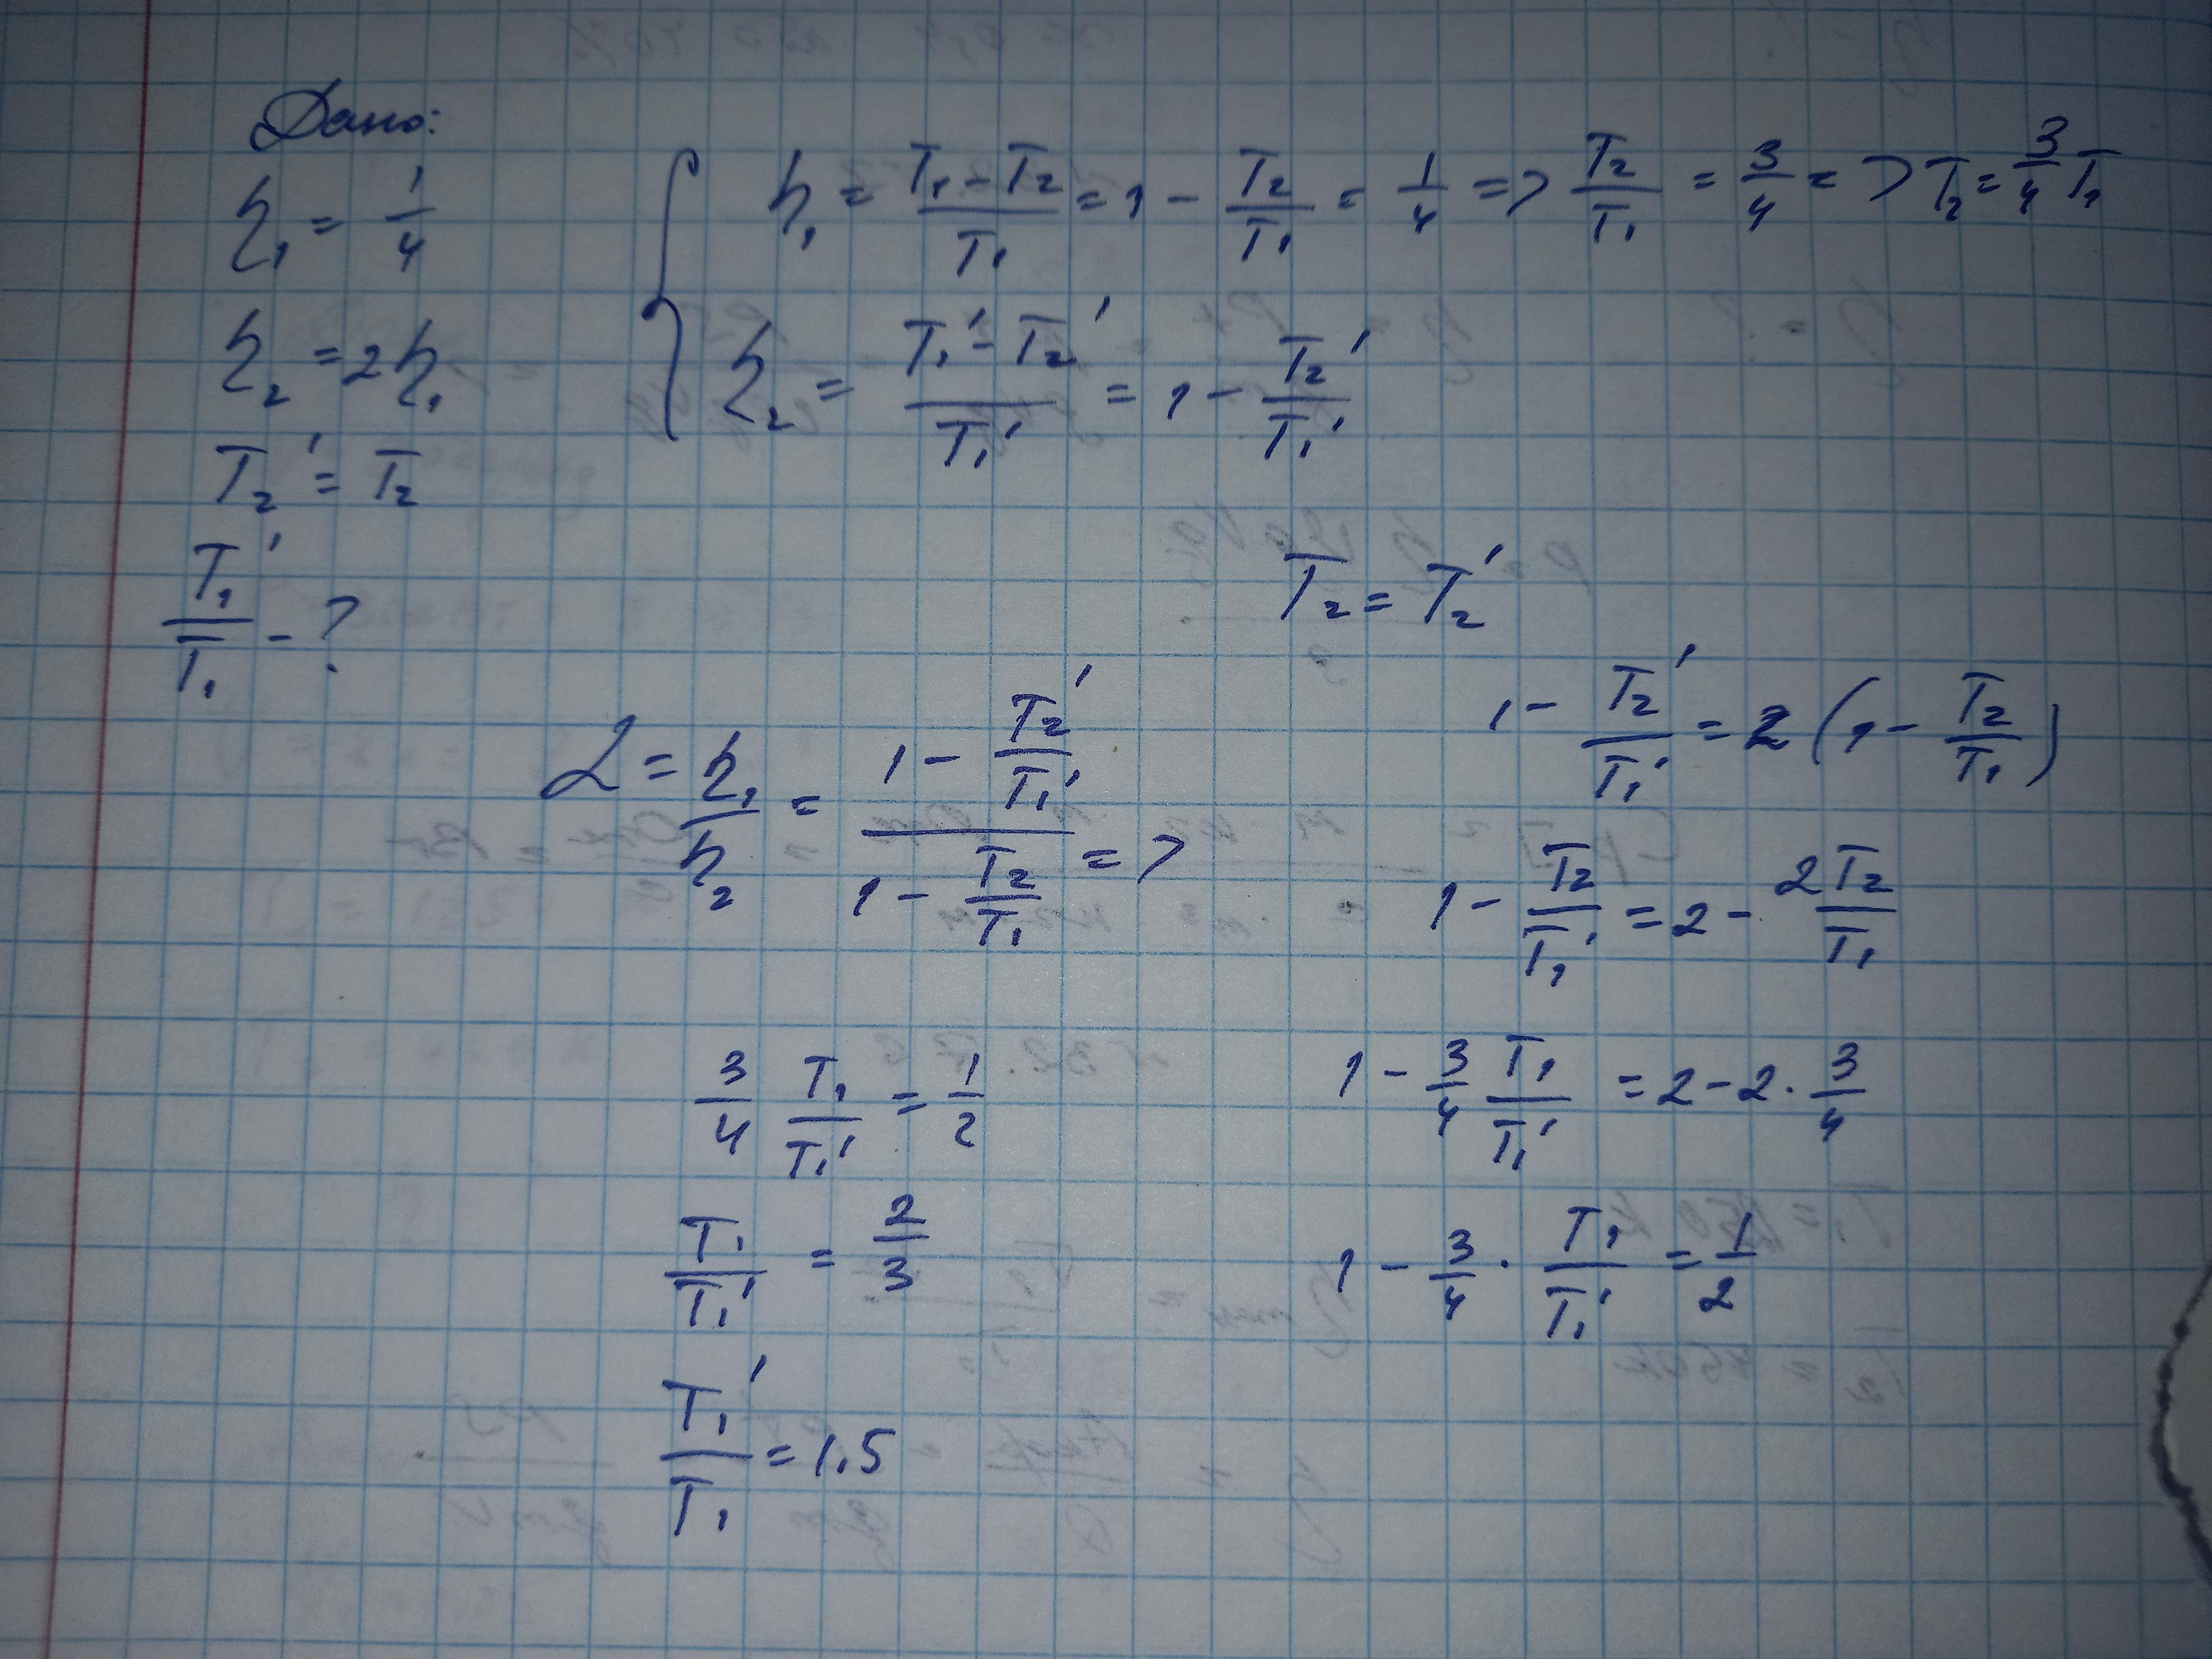 Дано:
η₁ = 1/4
η₂ = 2η₁
T₂' = T₂
T₁'/T₁ - ?
η₁ = (T₁ - T₂)/T₁ = 1 - T₂/T₁ = 1/4 => T₂/T₁ = 3/4 => T₂ = 3/4 T₁
η₂ = (T₁' - T₂')/T₁' = 1 - T₂'/T₁'
T₂ = T₂'
2 = η₁/η₂ = (1 - T₂'/T₁')/(1 - T₂/T₁) =>
1 - T₂'/T₁' = 2(1 - T₂/T₁)
1 - T₂/T₁' = 2 - 2T₂/T₁
1 - 3/4 T₁/T₁' = 2 - 2 · 3/4
1 - 3/4 · T₁/T₁' = 1/2
3/4 T₁/T₁' = 1/2
T₁/T₁' = 2/3
T₁'/T₁ = 1,5